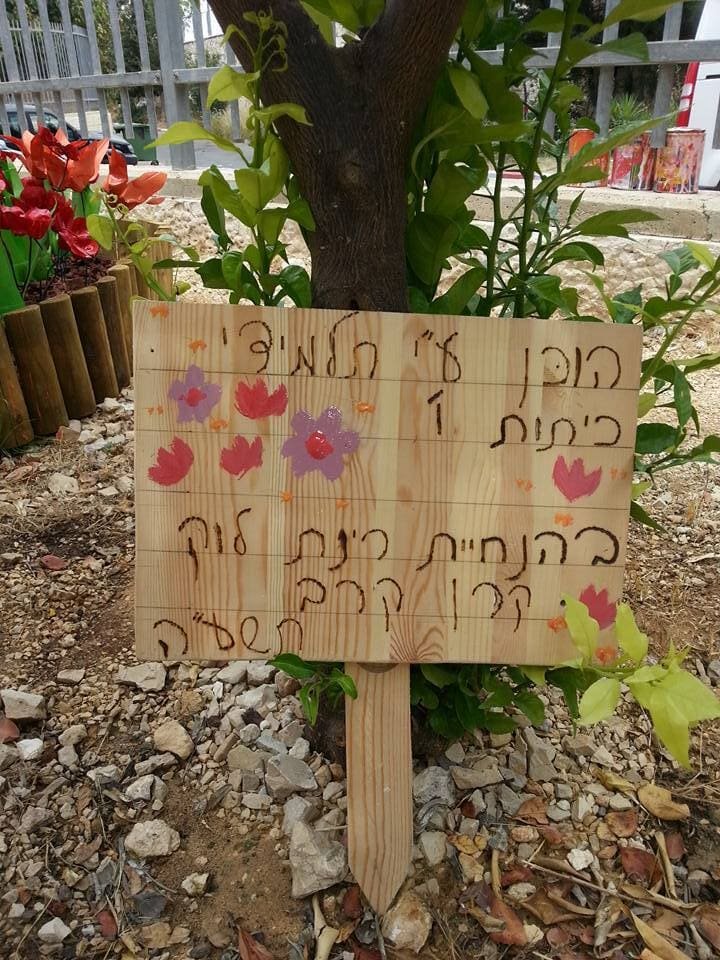 הוכן ע"י תלמידי
כיתות ו'
בהנחיית רינת לוק
קרן קרב
תשע"ה